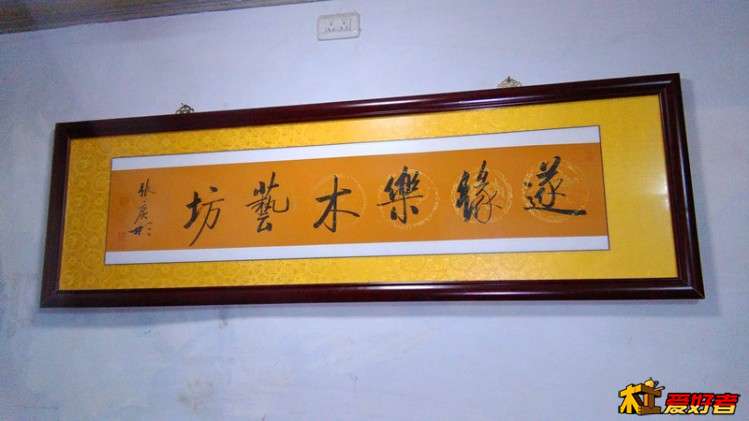 遂緣樂木藝坊
木工爱好者